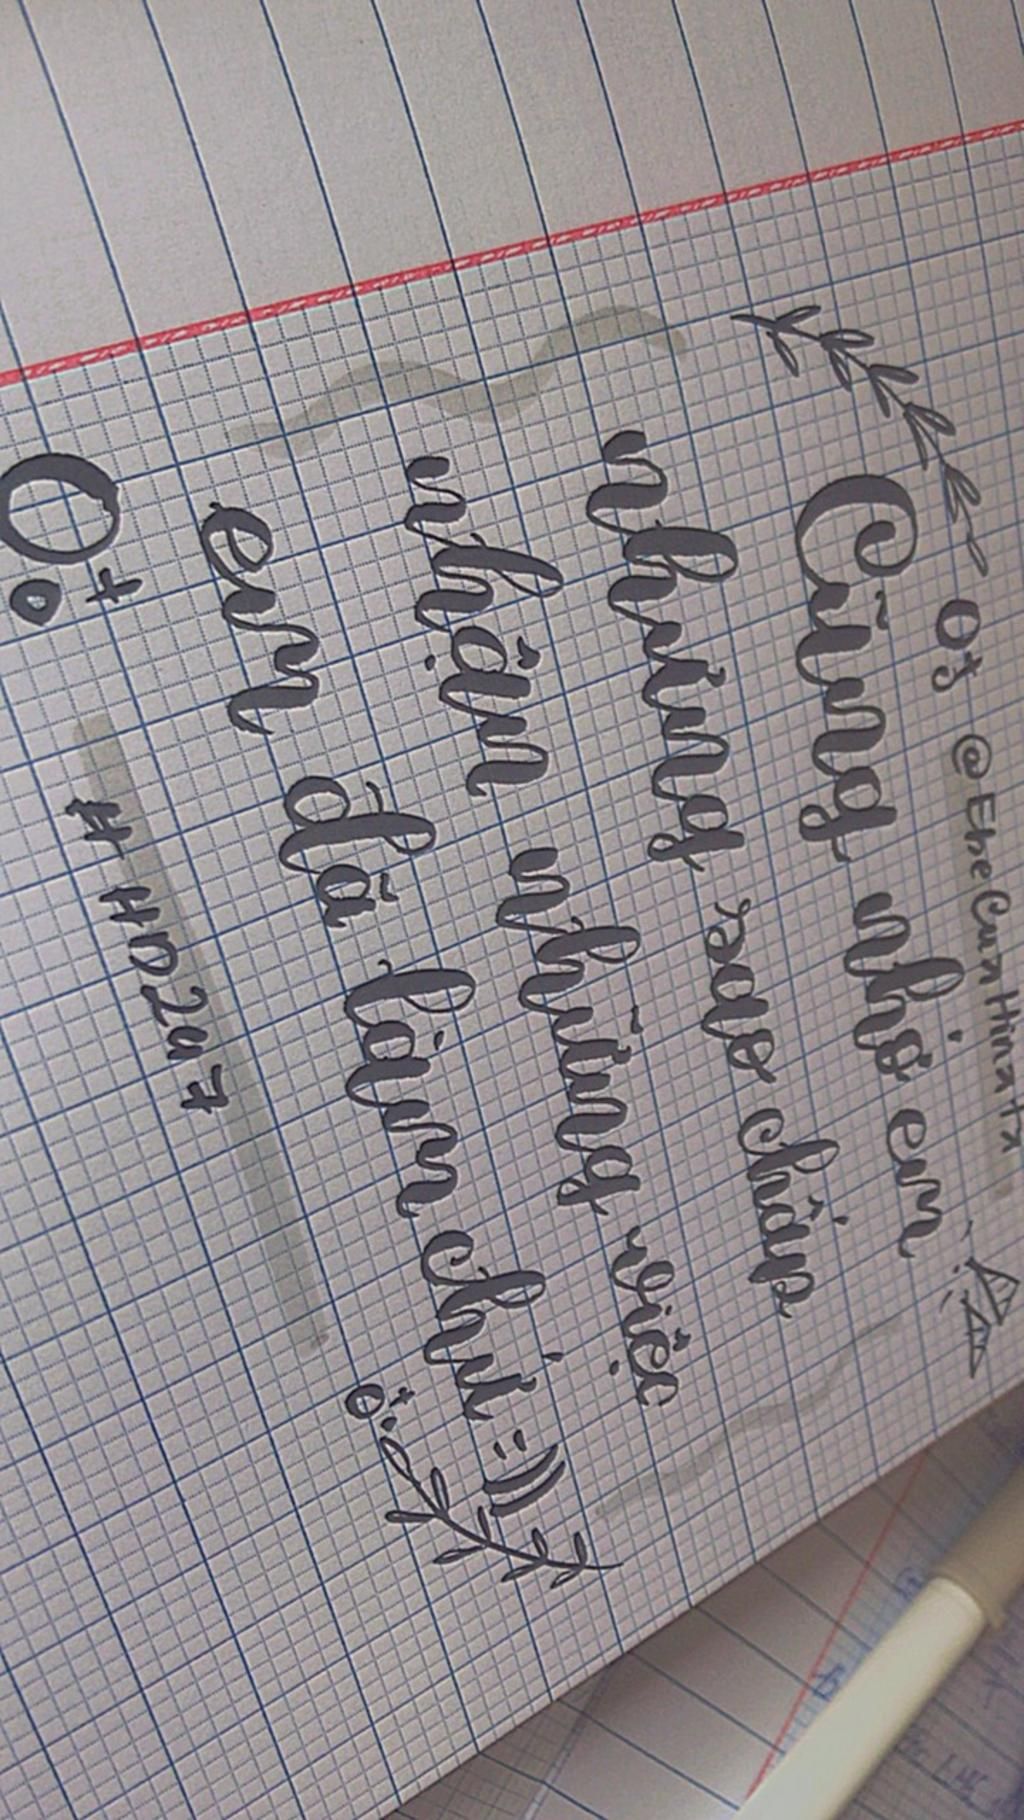 Of @EheCuaHinata
Cũng nhờ em
nhưng sao chấp
nhận những việc
em đã làm chứ :))
#HD247